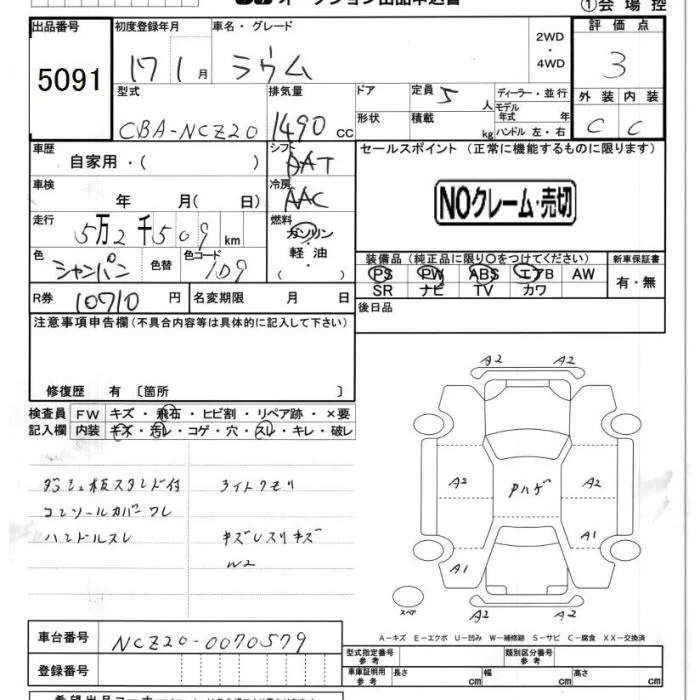 ①会場控
出品番号 初度登録年月 車名・グレード 2WD 4WD 評価点
5091 17 1月 ラウム 3
型式 排気量 ドア 定員 5人 ディーラー・並行 外装 内装
CBA-NCZ20 1490cc 形状 積載 kg モデル年式 年 ハンドル 左・右 C C
車歴 シフト セールスポイント(正常に機能するものに限ります)
自家用・( ) AT
車検 冷房 NOクレーム・売切
年 月( 日) AAC
走行 5万2千509km 燃料 ガソリン
色 シャンパン 色替 色コード 1D9 軽油 ( ・ )
装備品(純正品に限り○をつけてください) 新車保証書
PS PW ABS エアB AW 有・無
SR ナビ TV カワ
R券 10710円 名変期限 月 日 後日品
注意事項申告欄(不具合内容等は具体的に記入して下さい)
修復歴 有 〔箇所 〕
検査員 FW キズ・飛石・ヒビ割・リペア跡・×要
記入欄 内装 キズ・汚レ・コゲ・穴・スレ・キレ・破レ
ダシュ板スタンド付 ライトクモリ
コンソールカバーワレ
ハンドルスレ キズレスリキズ
W2
A2 A2
A2 Pハゲ A2
A1
A1
スペア
A2 A2
A-キズ E-エクボ U-凹み W-補修跡 S-サビ C-腐食 XX-交換済
車台番号 NCZ20-0070579
型式指定番号 参考 類別区分番号 参考
登録番号 車庫証明用 参考 長さ cm 幅 cm 高さ cm